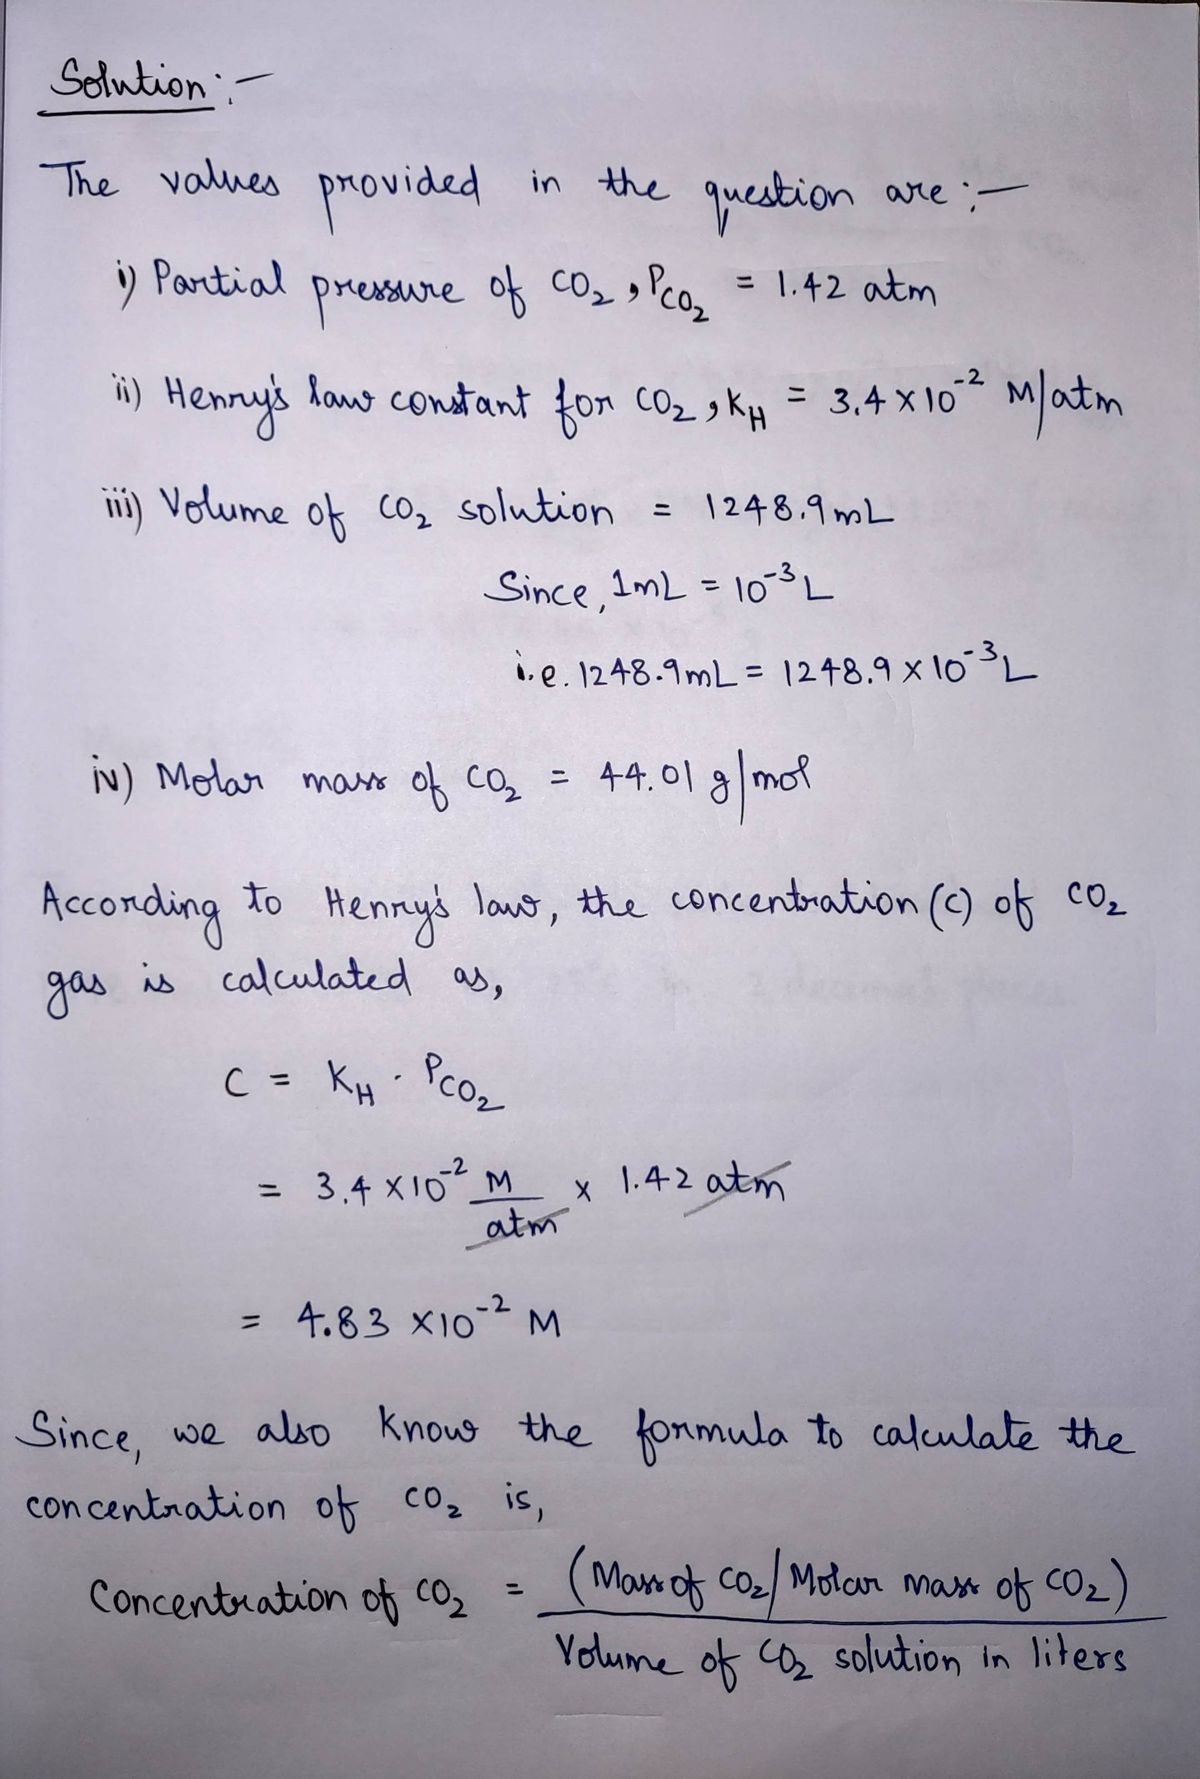 Solution :-
The values provided in the question are :-
i) Partial pressure of CO₂, P_CO₂ = 1.42 atm
ii) Henry's law constant for CO₂, K_H = 3.4 × 10⁻² M/atm
iii) Volume of CO₂ solution = 1248.9 mL
Since, 1mL = 10⁻³ L
i.e. 1248.9 mL = 1248.9 × 10⁻³ L
iv) Molar mass of CO₂ = 44.01 g/mol
According to Henry's law, the concentration (C) of CO₂
gas is calculated as,
C = K_H · P_CO₂
= 3.4 × 10⁻² M/atm × 1.42 atm
= 4.83 × 10⁻² M
Since, we also know the formula to calculate the
concentration of CO₂ is,
Concentration of CO₂ = (Mass of CO₂ / Molar mass of CO₂)
Volume of CO₂ solution in liters